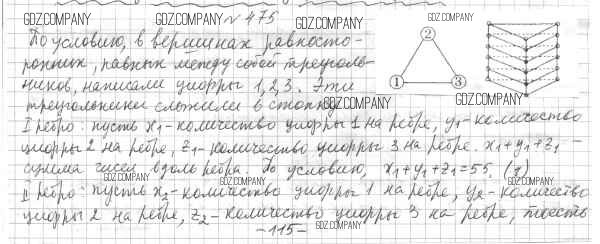 GDZ.COMPANY № 475 GDZ.COMPANY GDZ.COMPANY
По условию, в вершинах равносто-
ронних, равных между собой треуголь-
ников, написали цифры 1, 2, 3. Эти
треугольники сложили в стопку.
2
1 3
GDZ.COMPANY GDZ.COMPANY
I ребро: пусть x₁ - количество цифры 1 на ребре, y₁ - количество
цифры 2 на ребре, z₁ - количество цифры 3 на ребре. x₁+y₁+z₁ -
сумма чисел вдоль ребра. По условию, x₁+y₁+z₁=55. (1)
GDZ.COMPANY GDZ.COMPANY GDZ.COMPANY
II ребро: пусть x₂ - количество цифры 1 на ребре, y₂ - количество
цифры 2 на ребре, z₂ - количество цифры 3 на ребре, тогда есть
-115- GDZ.COMPANY